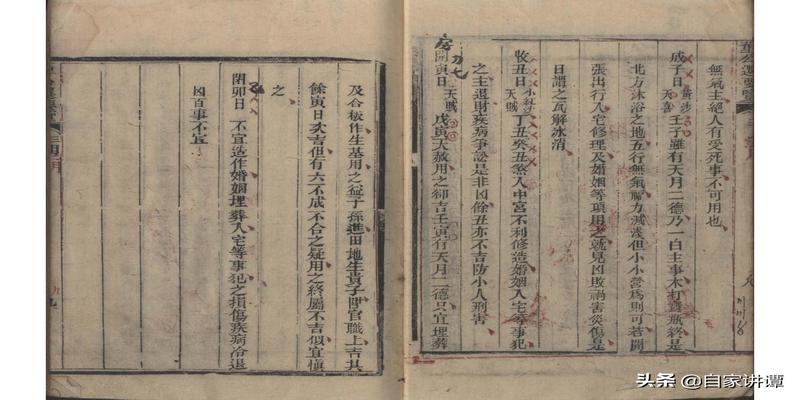 無氣主絕人有受死事不可用也
成子日 黃沙 天富 壬子雖有天月二德乃一白主事木打寶瓶終是
北方沐浴之地五行無氣福力減淺但小小營為則可若開
張出行入宅修理及婚姻等項用之就見凶敗禍害災傷是
日謂之瓦解冰消
收丑日 小紅沙 天賊 丁丑癸丑煞入中宮不利修造婚姻入宅等事犯
之主退財疾病爭訟是非凶餘丑亦不吉防小人刑害
開寅日 天賊 戊寅天赦用之卻吉壬寅有天月二德只宜埋葬
及合板作生基用之益子孫進田地生貴子陞官職上吉其
餘寅日次吉但有六不成不合之疑用之終屬不吉似宜慎
之
閉卯日 不宜造作婚姻埋葬入宅等事犯之損傷疾病冷退
凶百事不宜
头条 @自家讲谭